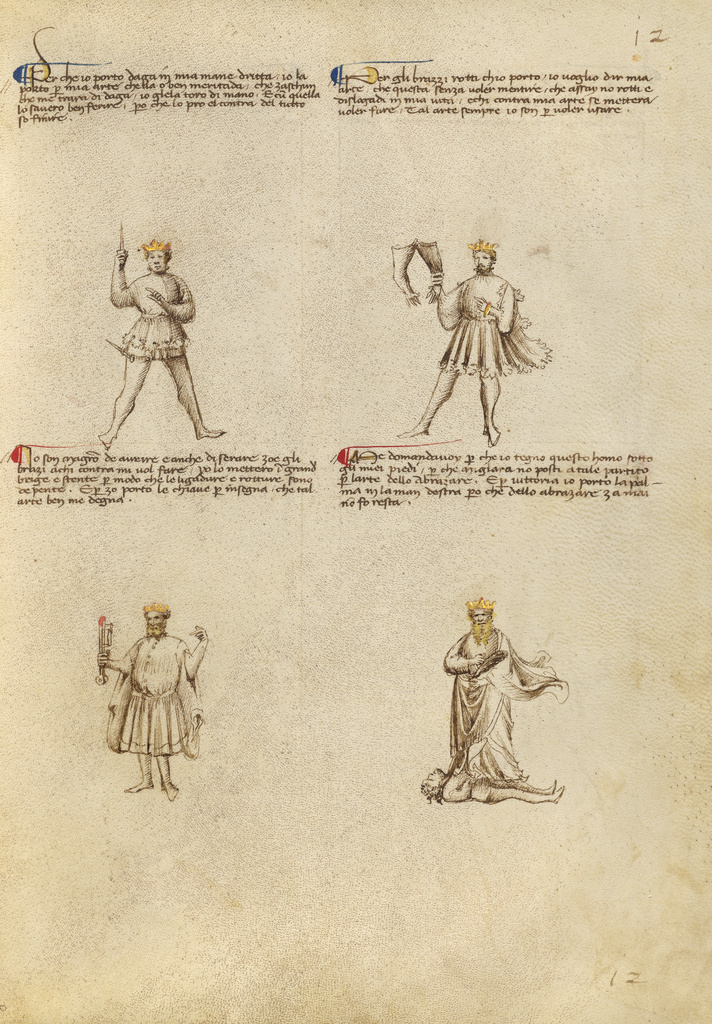 12
Per che io porto daga in mia mane dritta, io la
porto p mia arte chella o ben meritada, che zaschun
che me trara di daga, io glela toro di mano. E cu quella
lo savero ben ferire, po che lo pro el contra del tutto
so finire.
Per gli brazzi rotti ch'io porto, io voglio dir mia
arte, che questa senza voler mentire, che assay no rotti e
dislogadi in mia vita, e chi contra mia arte se mettera
voler fare, Tal arte sempre io son p voler usare.
Io son magro de avrire e anche di serare zoe gli
brazi a chi contra mi vol fare, po lo mettero i grand
brige e stente p modo che le ligadure e rotture sono
depente. E p zo porto le chiave p insegna, che tal
arte ben me degna.
Me domandavoy p che io tegno questo homo sotto
gli miei piedi, p che migliara no posti a tale partito
p larte dello abrazare. E p vittoria io porto la pal-
ma in la man destra po che dello abrazare za mai
no fo resta.
12